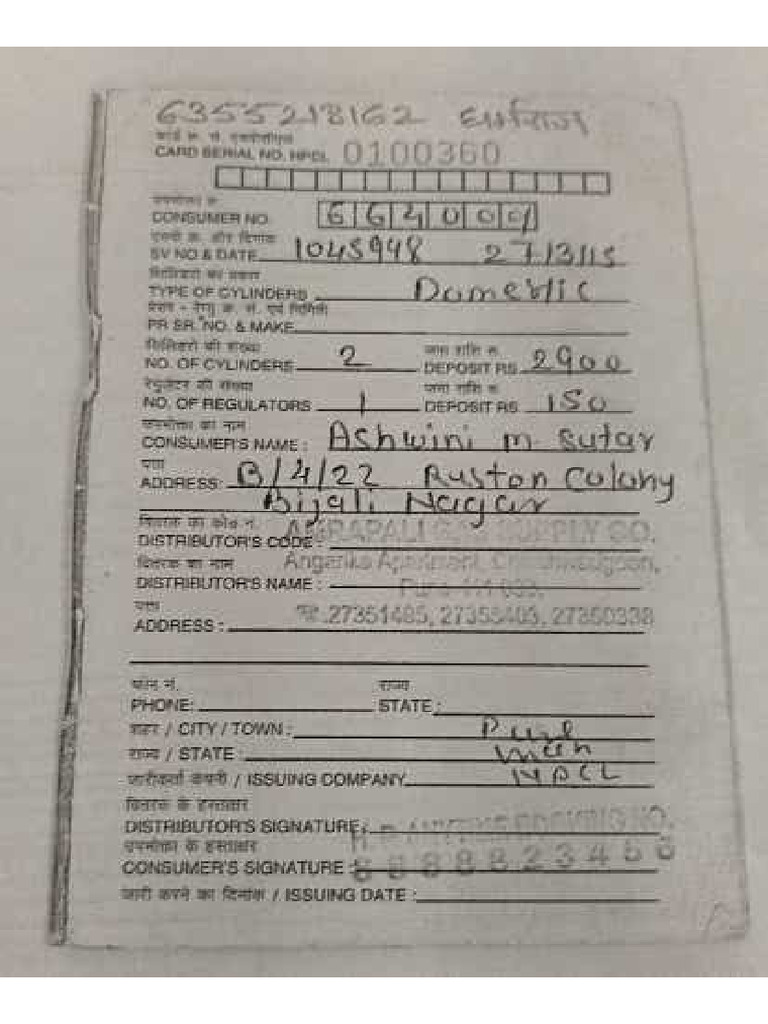 6355218162 धर्मराज
कार्ड क्र. सं. एचपीसीएल
CARD SERIAL NO. HPCL 0100360
उपभोक्ता क्र.
CONSUMER NO. 664009
एसवी क्र. और दिनांक
SV NO & DATE 1045948 27/3/15
सिलिंडरों का प्रकार
TYPE OF CYLINDERS Domestic
प्रेशर - रेग्यु क्र. सं. एवं निर्मिती
PR SR. NO. & MAKE
सिलिंडरों की संख्या जमा राशि रु.
NO. OF CYLINDERS 2 DEPOSIT RS 2900
रेग्युलेटर की संख्या जमा राशि रु.
NO. OF REGULATORS 1 DEPOSIT RS 150
उपभोक्ता का नाम
CONSUMER'S NAME : Ashwini M. Sutar
पता
ADDRESS: B/4/22 Ruston Colony
Bijali Nagar
वितरक का कोड नं. AMRAPALI GAS SUPPLY CO.
DISTRIBUTOR'S CODE :
वितरक का नाम Angarika Apartment, Chinchwadgaon,
DISTRIBUTOR'S NAME :
पता
ADDRESS : 27351485, 27358403, 27350338
फोन नं. राज्य
PHONE: STATE :
शहर / CITY / TOWN : Pune
राज्य / STATE : Mah
जारीकर्ता कंपनी / ISSUING COMPANY HPCL
वितरक के हस्ताक्षर
DISTRIBUTOR'S SIGNATURE: NO.
उपभोक्ता के हस्ताक्षर
CONSUMER'S SIGNATURE : 8888823456
जारी करने का दिनांक / ISSUING DATE :